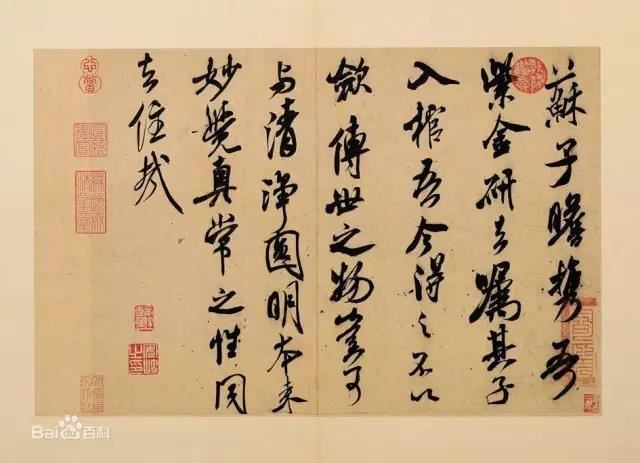 蘇子瞻携吾
紫金研去嘱其子
入棺吾今得之不以
歛傳世之物豈可
与清淨圓明本来
妙覺真常之性同
去住哉
Bai百科